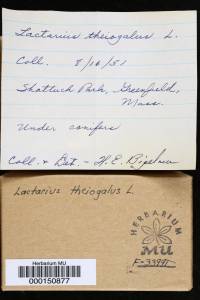 Lactarius theiogalus L.
Coll. 8/16/81
Shattuck Park, Greenfield,
Mass.
Under conifers
Coll. & Det. - H. E. Bigelow
Lactarius theiogalus L
HERBARIUM
MU
Herbarium MU
000150877